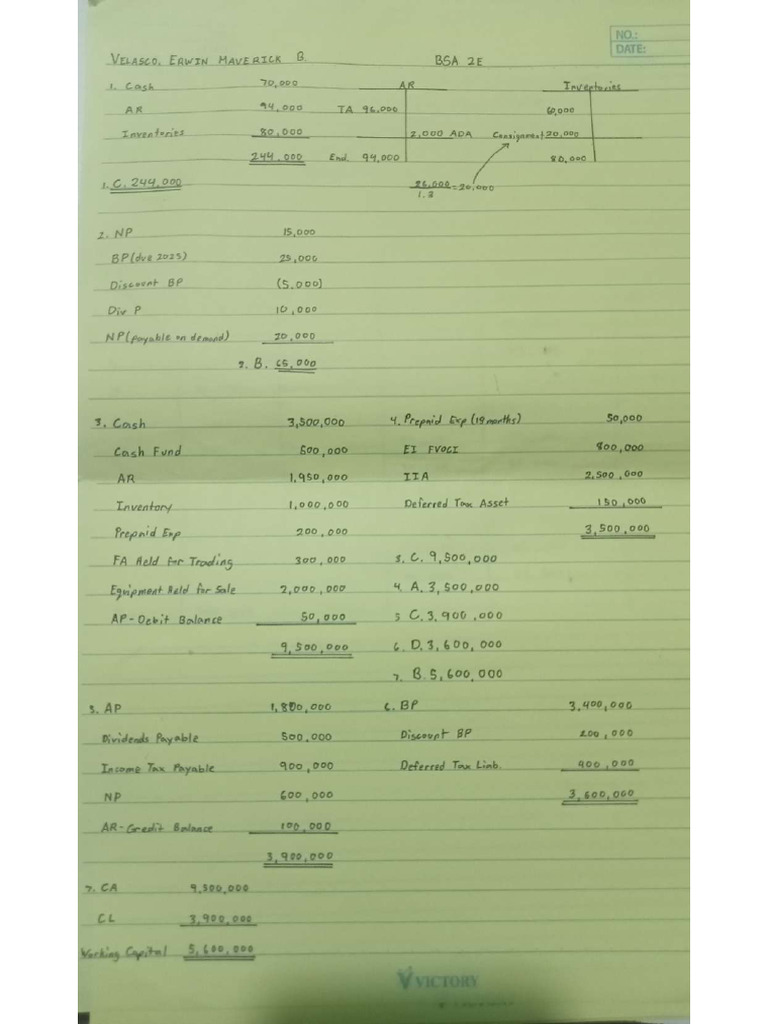 NO.:
DATE:
VELASCO, ERWIN MAVERICK B. BSA 2E
1. Cash 70,000 AR Inventories
AR 94,000 TA 96,000 60,000
Inventories 80,000 2,000 ADA Consignment 20,000
244,000 End. 94,000 80,000
1. C. 244,000 26,000/1.3 = 20,000
2. NP 15,000
BP (due 2025) 25,000
Discount BP (5,000)
Div P 10,000
NP (payable on demand) 20,000
2. B. 65,000
3. Cash 3,500,000 4. Prepaid Exp (19 months) 50,000
Cash Fund 500,000 EI FVOCI 800,000
AR 1,950,000 IIA 2,500,000
Inventory 1,000,000 Deferred Tax Asset 150,000
Prepaid Exp 200,000 3,500,000
FA Held for Trading 300,000 3. C. 9,500,000
Equipment Held for Sale 2,000,000 4. A. 3,500,000
AP-Debit Balance 50,000 5 C. 3,900,000
9,500,000 6. D. 3,600,000
7. B. 5,600,000
5. AP 1,800,000 6. BP 3,400,000
Dividends Payable 500,000 Discount BP 200,000
Income Tax Payable 900,000 Deferred Tax Liab. 400,000
NP 600,000 3,600,000
AR-Credit Balance 100,000
3,900,000
7. CA 9,500,000
CL 3,900,000
Working Capital 5,600,000
VICTORY